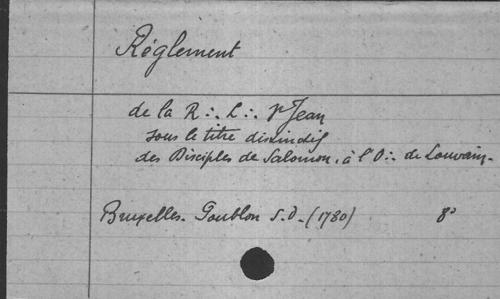 Réglement
de la R∴ L∴ St Jean
sous le titre distinctif
des Disciples de Salomon, à l'O∴ de Louvain.
Bruxelles. Goublon S.D. (1780) 8°